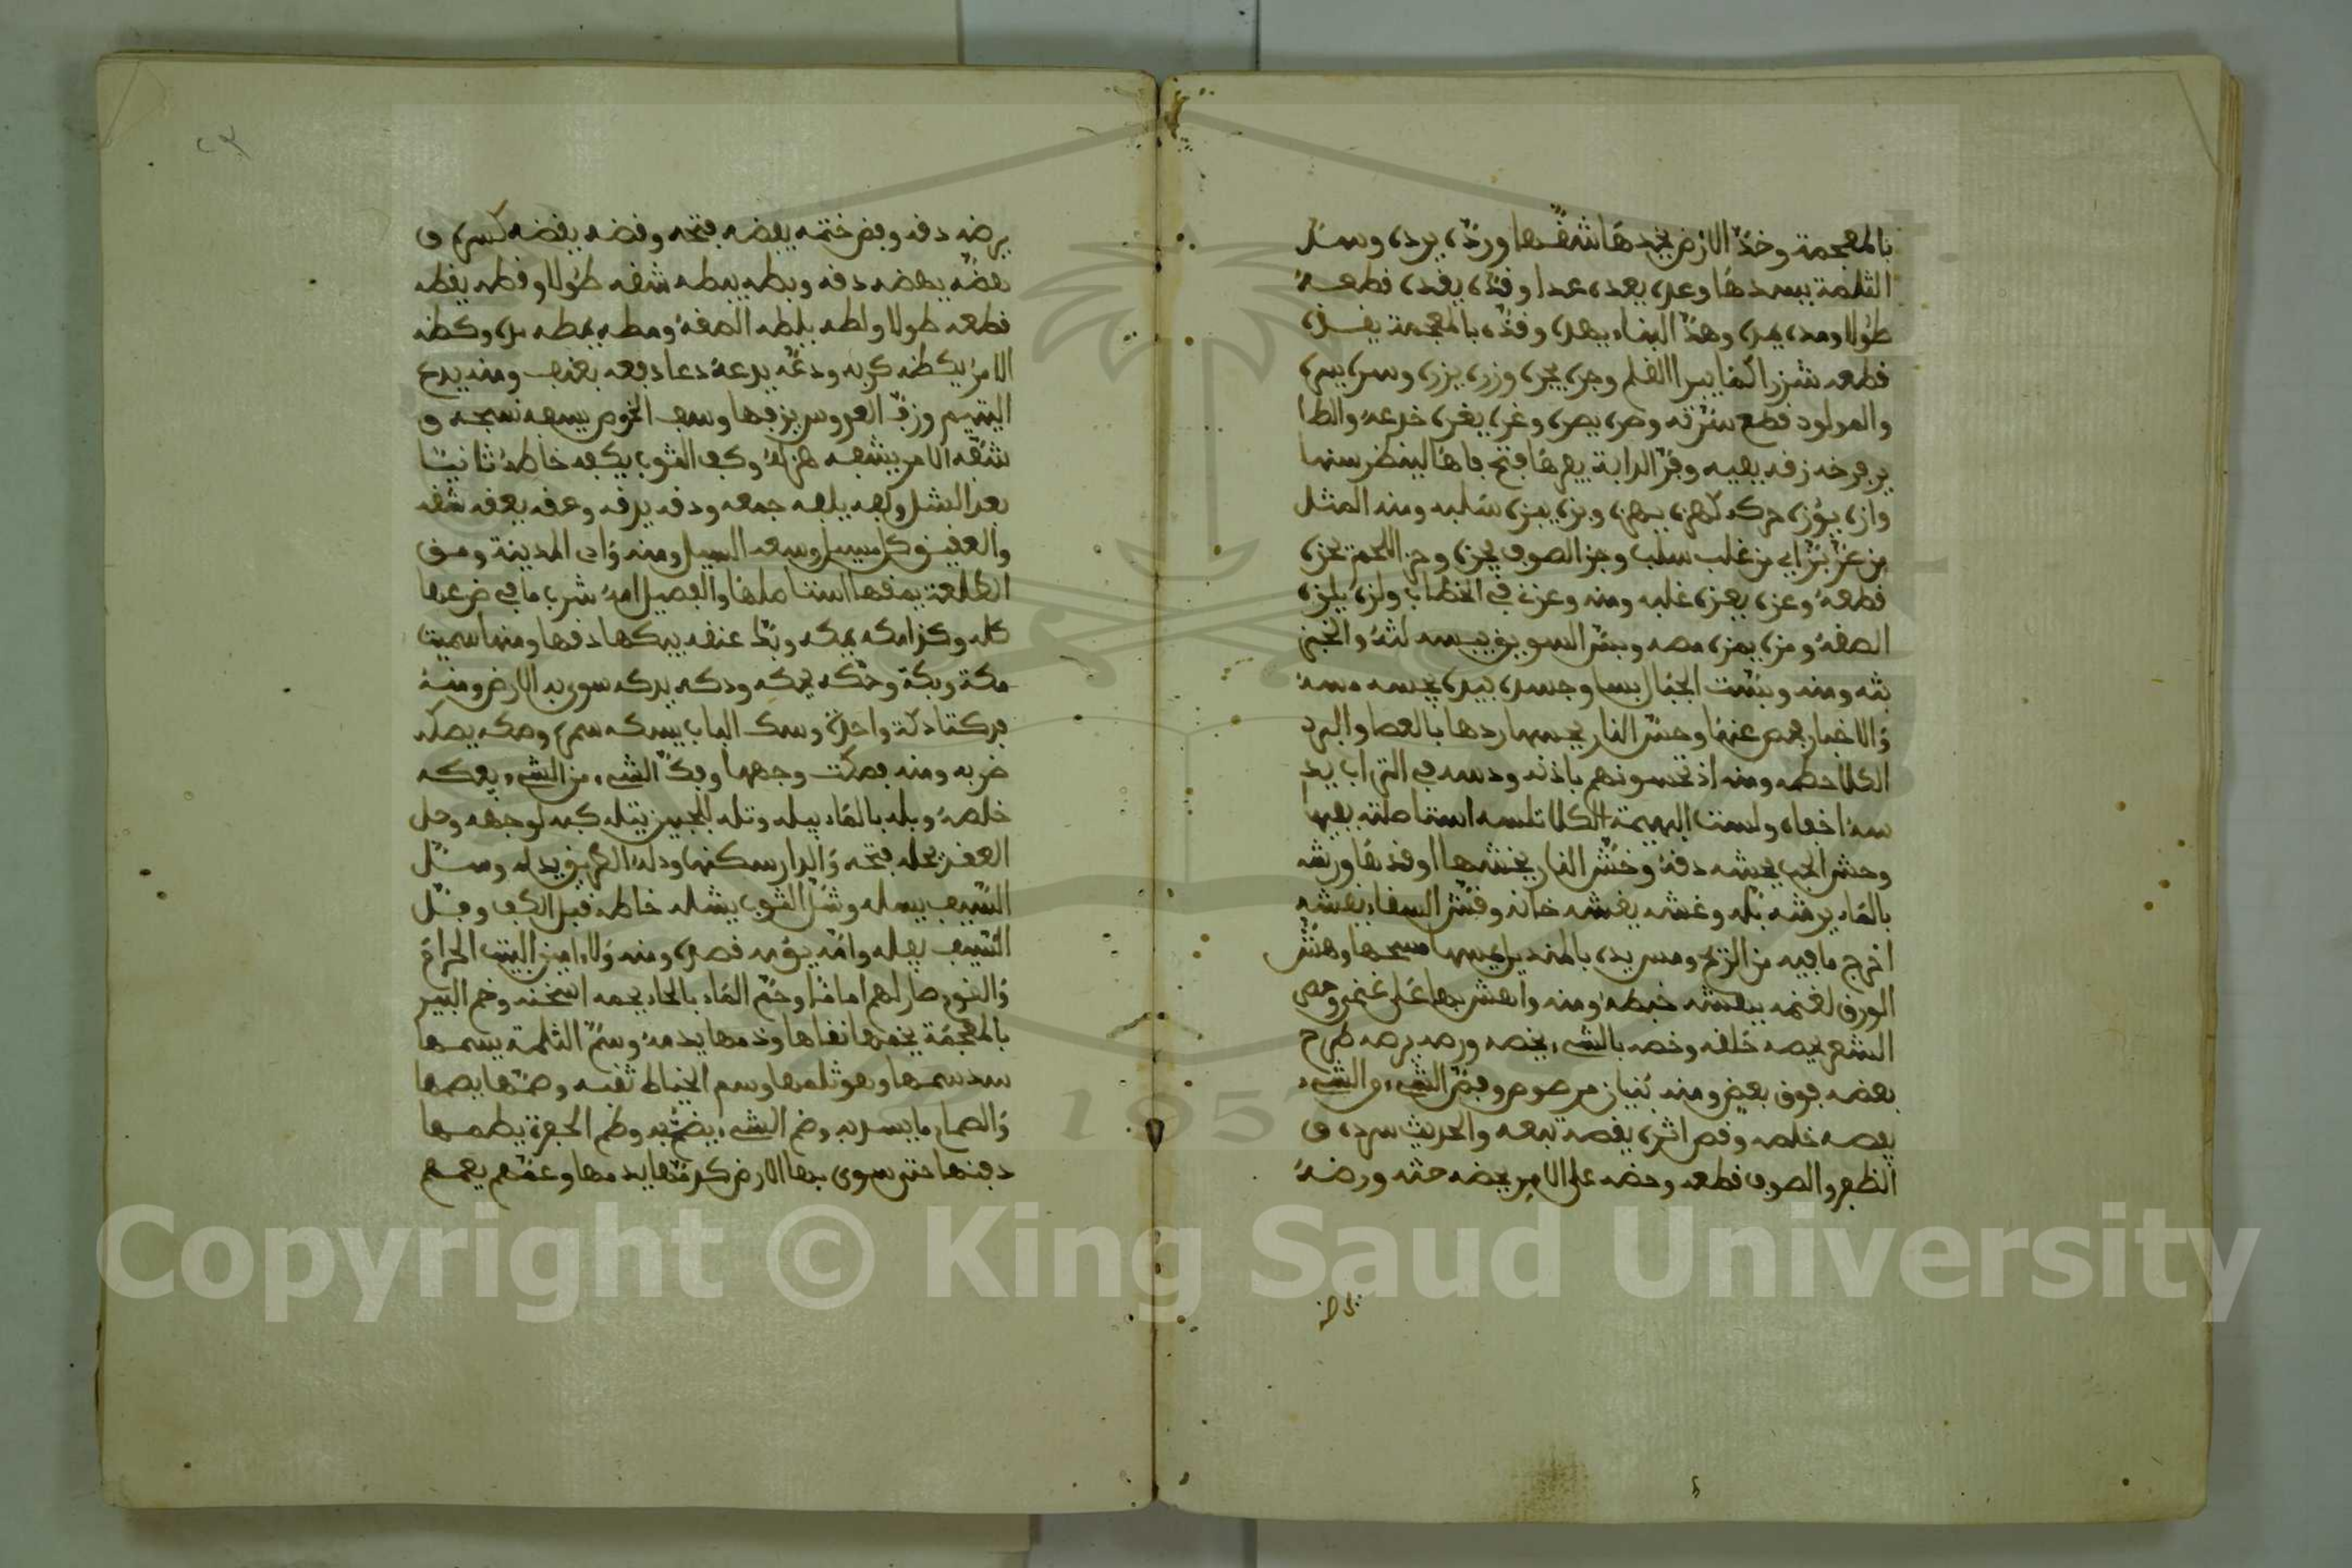 بالمعجمة وخدّ الارض يخدها شقها وردّه يرده وسدّ
الثلمة يسدها وعده يعده عدا وقدّه يقده قطعه
طولا ومده يمده وهدّ البناء يهده وقذّه بالمعجمة يقذه
قطعه شزرا كما يبرا القلم وجره يجره وزره يزره وسره يسره
والمولود قطع سرّته وصره يصره وغره يغره خدعه والطا
ير فرخه زقه بفيه وفرّ الدابة يفرها فتح فاها لينظر سنها
وازه يؤزه حركه كهزه يهزه وبزه يبزه سلبه ومنه المثل
من عزّ بزّ اي من غلب سلب وجز الصوف يجزه وحز اللحم يحزه
قطعه وعزه يعزه غلبه ومنه وعزني في الخطاب ولزه يلزه
الصقه ومزه يمزه مصه وبسّ السويق يبسه لته والخبز
بثه ومنه وبسّت الجبال بسا وجسه بيده يجسه مسه
والاخبار فحص عنها وحسّ النار يحسها ردها بالعصا والبرد
الكلا حطمه ومنه اذ تحسونهم باذنه ودسه في التراب يد
سه اخفاه ولست البهيمة الكلا تلسه استاصلته بفيها
وحش الحب يحشه دقه وحشّ النار يحشها اوقدها ورشه
بالماء يرشه بله وغشه يغشه خانه وفشّ السقاء يفشه
اخرج ما فيه من الريح ومس يده بالمنديل يمسها مسحها وهشّ
الورق لغنمه يهشه خبطه ومنه واهش بها على غنمي وحص
الشعر يحصه حلقه وخصه بالشيء يخصه ورصه يرصه طرح
بعضه فوق بعض ومنه بنيان مرصوص وفصّ الشيء من الشيء
يفصه خلصه وقص اثره يقصه تبعه والحديث سرده و
الظفر والصوف قطعه وحضه على الامر يحضه حثه ورضه
يرضه دقه وفض ختمه يفضه فتحه وقضه يقضه كسره و
هضّه يهضه دقه وبطه يبطه شقه طولا وقطه يقطه
قطعه طولا ولطه يلطه الصقه ومطه يمطه مده وكظه
الامر يكظه كربه ودعّه يدعه دعا دفعه بعنف ومنه يدع
اليتيم وزفّ العروس يزفها وسف الخوص يسفه نسجه و
شفّه الامر يشفه هزله وكف الثوب يكفه خاطه ثانيا
بعد الشل ولفه يلفه جمعه ودقه يدقه وعقه يعقه شقه
والعقيق كل مسيل وسعه السيل ومنه وادي المدينة ومق
الطلعة يمقها استاصلها والفصيل امه شرب ما في ضرعها
كله وكذا مكه يمكه وبكّ عنقه يبكها دقها ومنها سميت
مكة وبكة وحكّه يحكه ودكه يدكه سوى به الارض ومنه
فدكتا دكّة واحدة وسك الباب يسكه سمره وصكه يصكه
ضربه ومنه فصكت وجهها وفكّ الشيء من الشيء يفكه
خلصه وبله بالماء يبله وتله للجبين يتله كبه لوجهه وحل
العقد يحله فتحه والدار سكنها ودله الطريق يدله وسلّ
السيف يسله وشلّ الثوب يشله خاطه قبل الكف وفلّ
السيف يفله وامّه يؤمه قصده ومنه ولا امين البيت الحرام
والقوم صار لهم اماما وحمّ الماء بالحاء يحمه اسخنه وخم البير
بالمعجمة يخمها نقاها وذمها يذمه وسمّ الثلمة يسمها
سد سمها وهو ثلمها وسم الخياط ثقبه وصمّها يصمها
والصمام ما يسد به وضم الشيء يضمّه وطم الحفرة يطمها
دفنها حتى سوى بها الارض كدمّها يدمها وعمّهم يعمهم